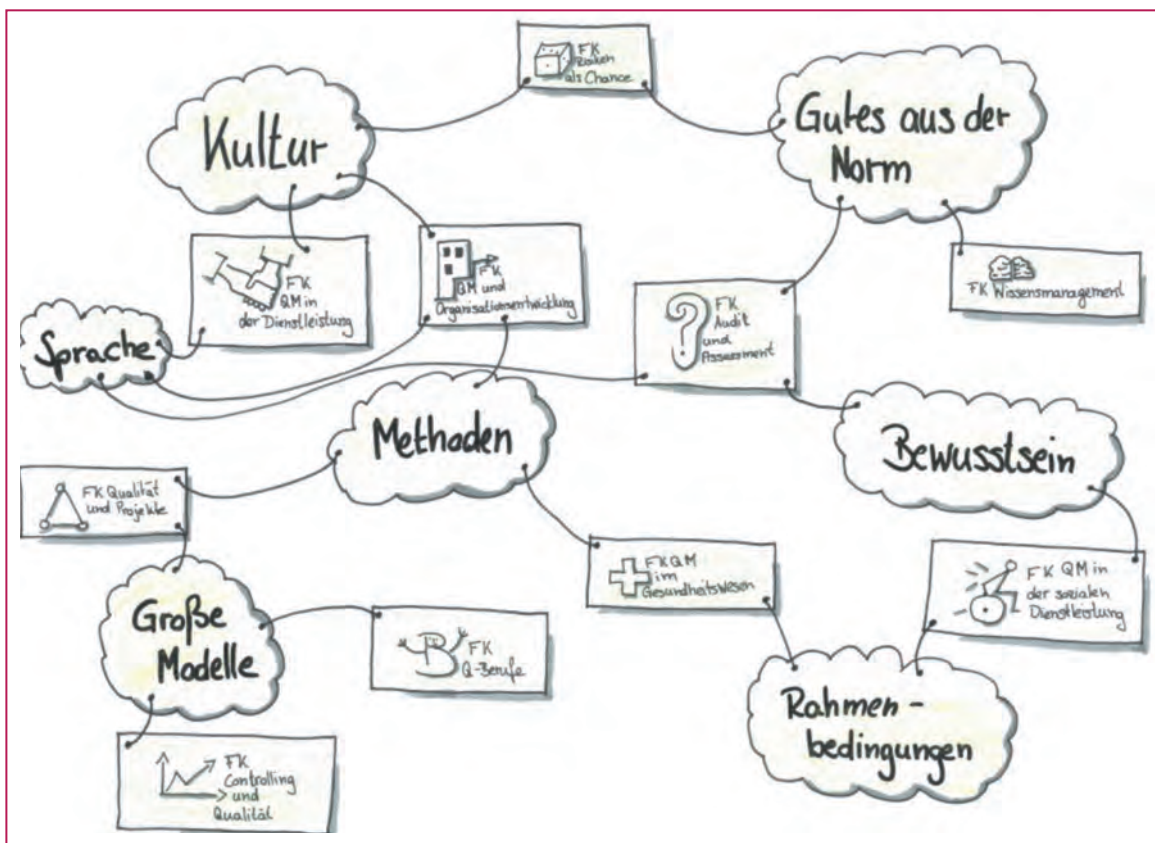 FK
Risiken
als Chance
Kultur
Gutes aus der
Norm
FK
QM in
der Dienstleistung
FK
QM und
Organisationsentwicklung
FK Wissensmanagement
FK
Audit
und
Assessment
Sprache
Methoden
Bewusstsein
FK Qualität
und Projekte
FK QM
im
Gesundheitswesen
FK QM in
der sozialen
Dienstleistung
Große
Modelle
B
FK
Q-Berufe
Rahmen-
bedingungen
FK
Controlling
und
Qualität